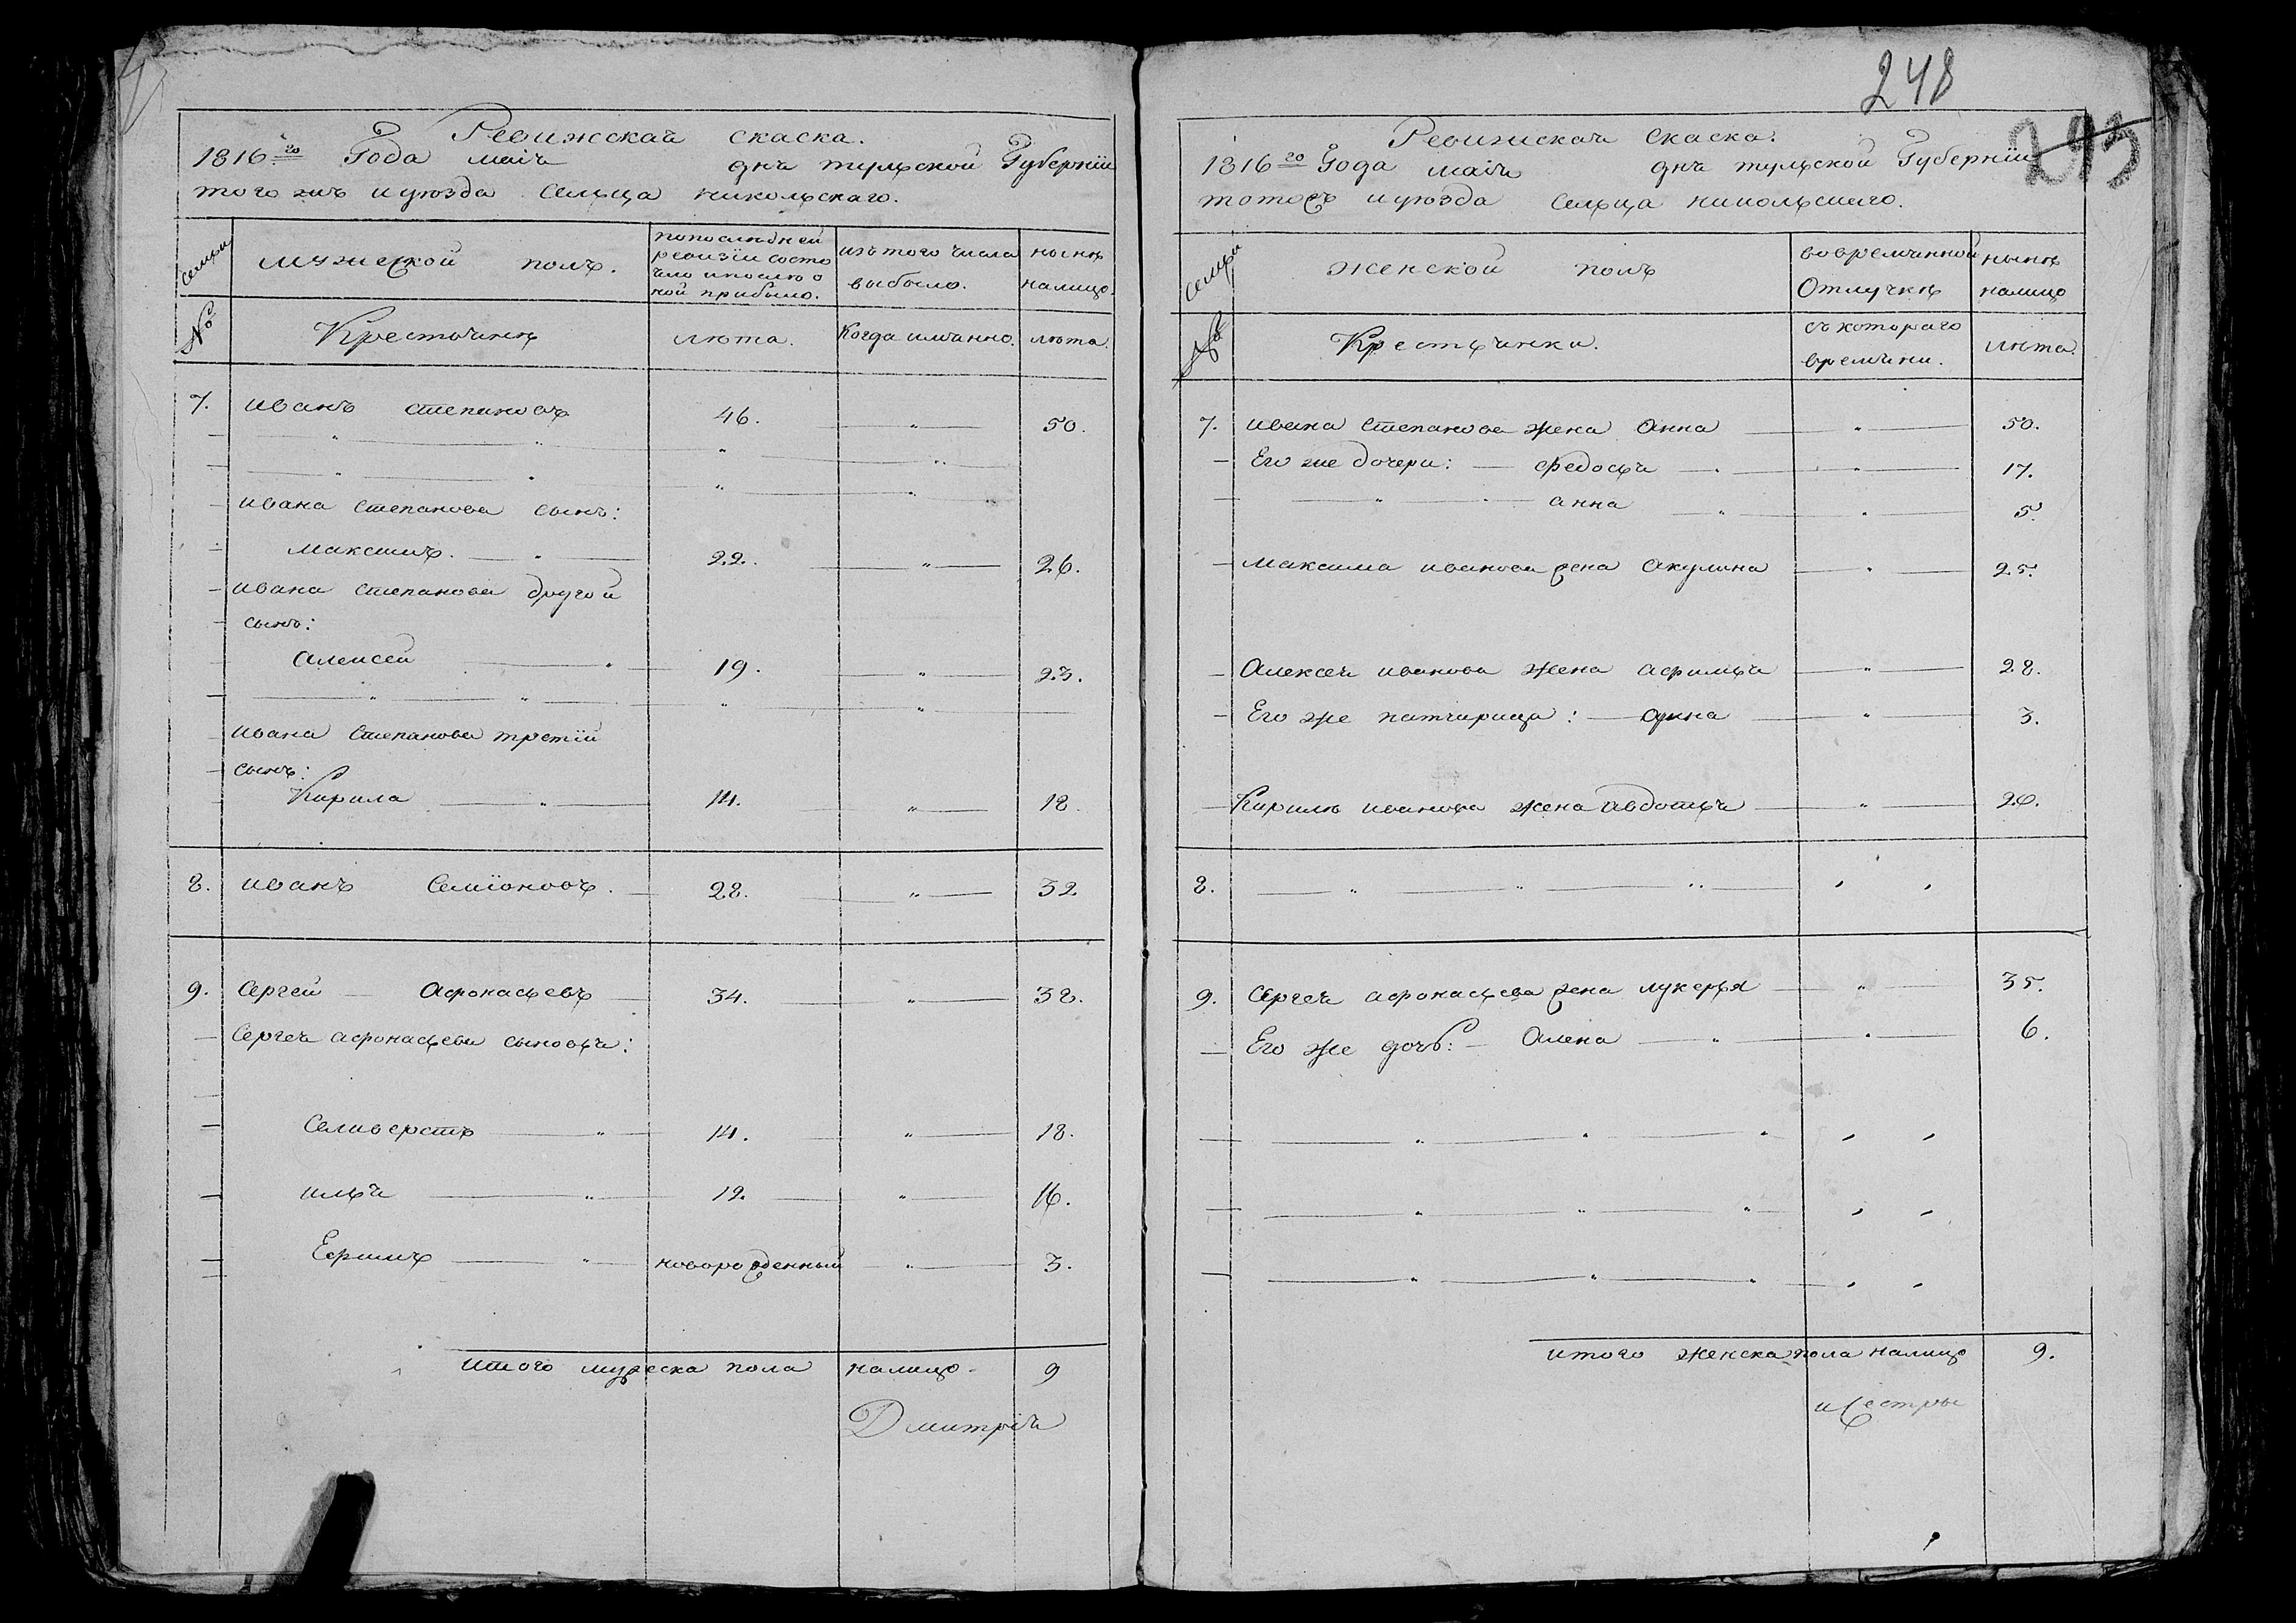 Ревижская скаска.
1816го Года маiя дня тульской Губернiи
того жъ и уѣзда сельца никольскаго.
семьи
мужеской полъ.
попослѣдней ревизiи состо
яло и послѣ о
ной прибыло.
изъ того числа
выбыло.
нынѣ
налицо.
№
Крестьянѣ
лѣта.
Когда имянно.
лѣта.
7. иванъ степановъ 46. " 50.
ивана степанова сынъ:
максимъ. " 22. " 26.
ивана степанова другой
сынъ:
алексей " 19. " 23.
ивана степанова третiй
сынъ:
Кирила " 14. " 18.
8. иванъ семiоновъ. 28. " 32
9. сергей афонасьевъ 34. " 38.
сергея афонасьева сыновья:
селиверстъ " 14. " 18.
илья " 12. " 16.
Ефимъ " новорожденный " 3.
итого мужеска пола налицо 9
Дмитрiя
248
243
Ревижская скаска.
1816го Года маiя дня тульской Губернiи
тогожъ и уѣзда сельца никольскаго.
семьи
женской полъ
вовремянной
отлучкѣ
нынѣ
налицо
№
Крестьянки.
съ котораго
времяни.
лѣта.
7. ивана степанова жена анна " 50.
Его же дочери: федосья " 17.
анна " 5.
максима иванова жена акулина " 25.
алексея иванова жена афимья " 28.
Его же патчирица: анна " 3.
Кирилы иванова жена авдотья " 20.
8.
9. сергея афонасьева жена лукерья " 35.
Его же дочь: алена " 6.
итого женска пола налицо 9.
и сестры